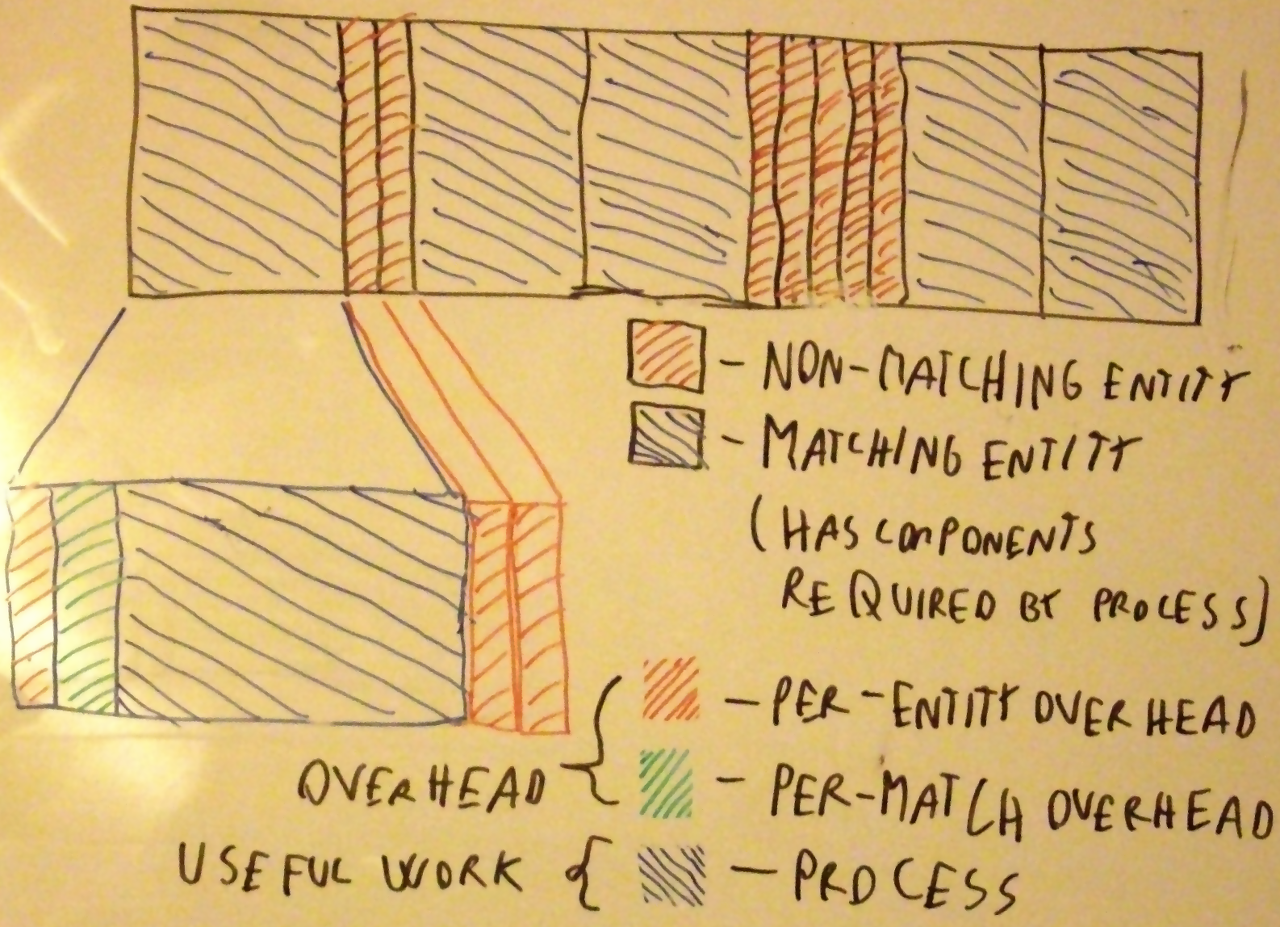 - NON-MATCHING ENTITY
- MATCHING ENTITY
(HAS COMPONENTS
REQUIRED BY PROCESS)
- PER-ENTITY OVERHEAD
OVERHEAD { - PER-MATCH OVERHEAD
USEFUL WORK { - PROCESS